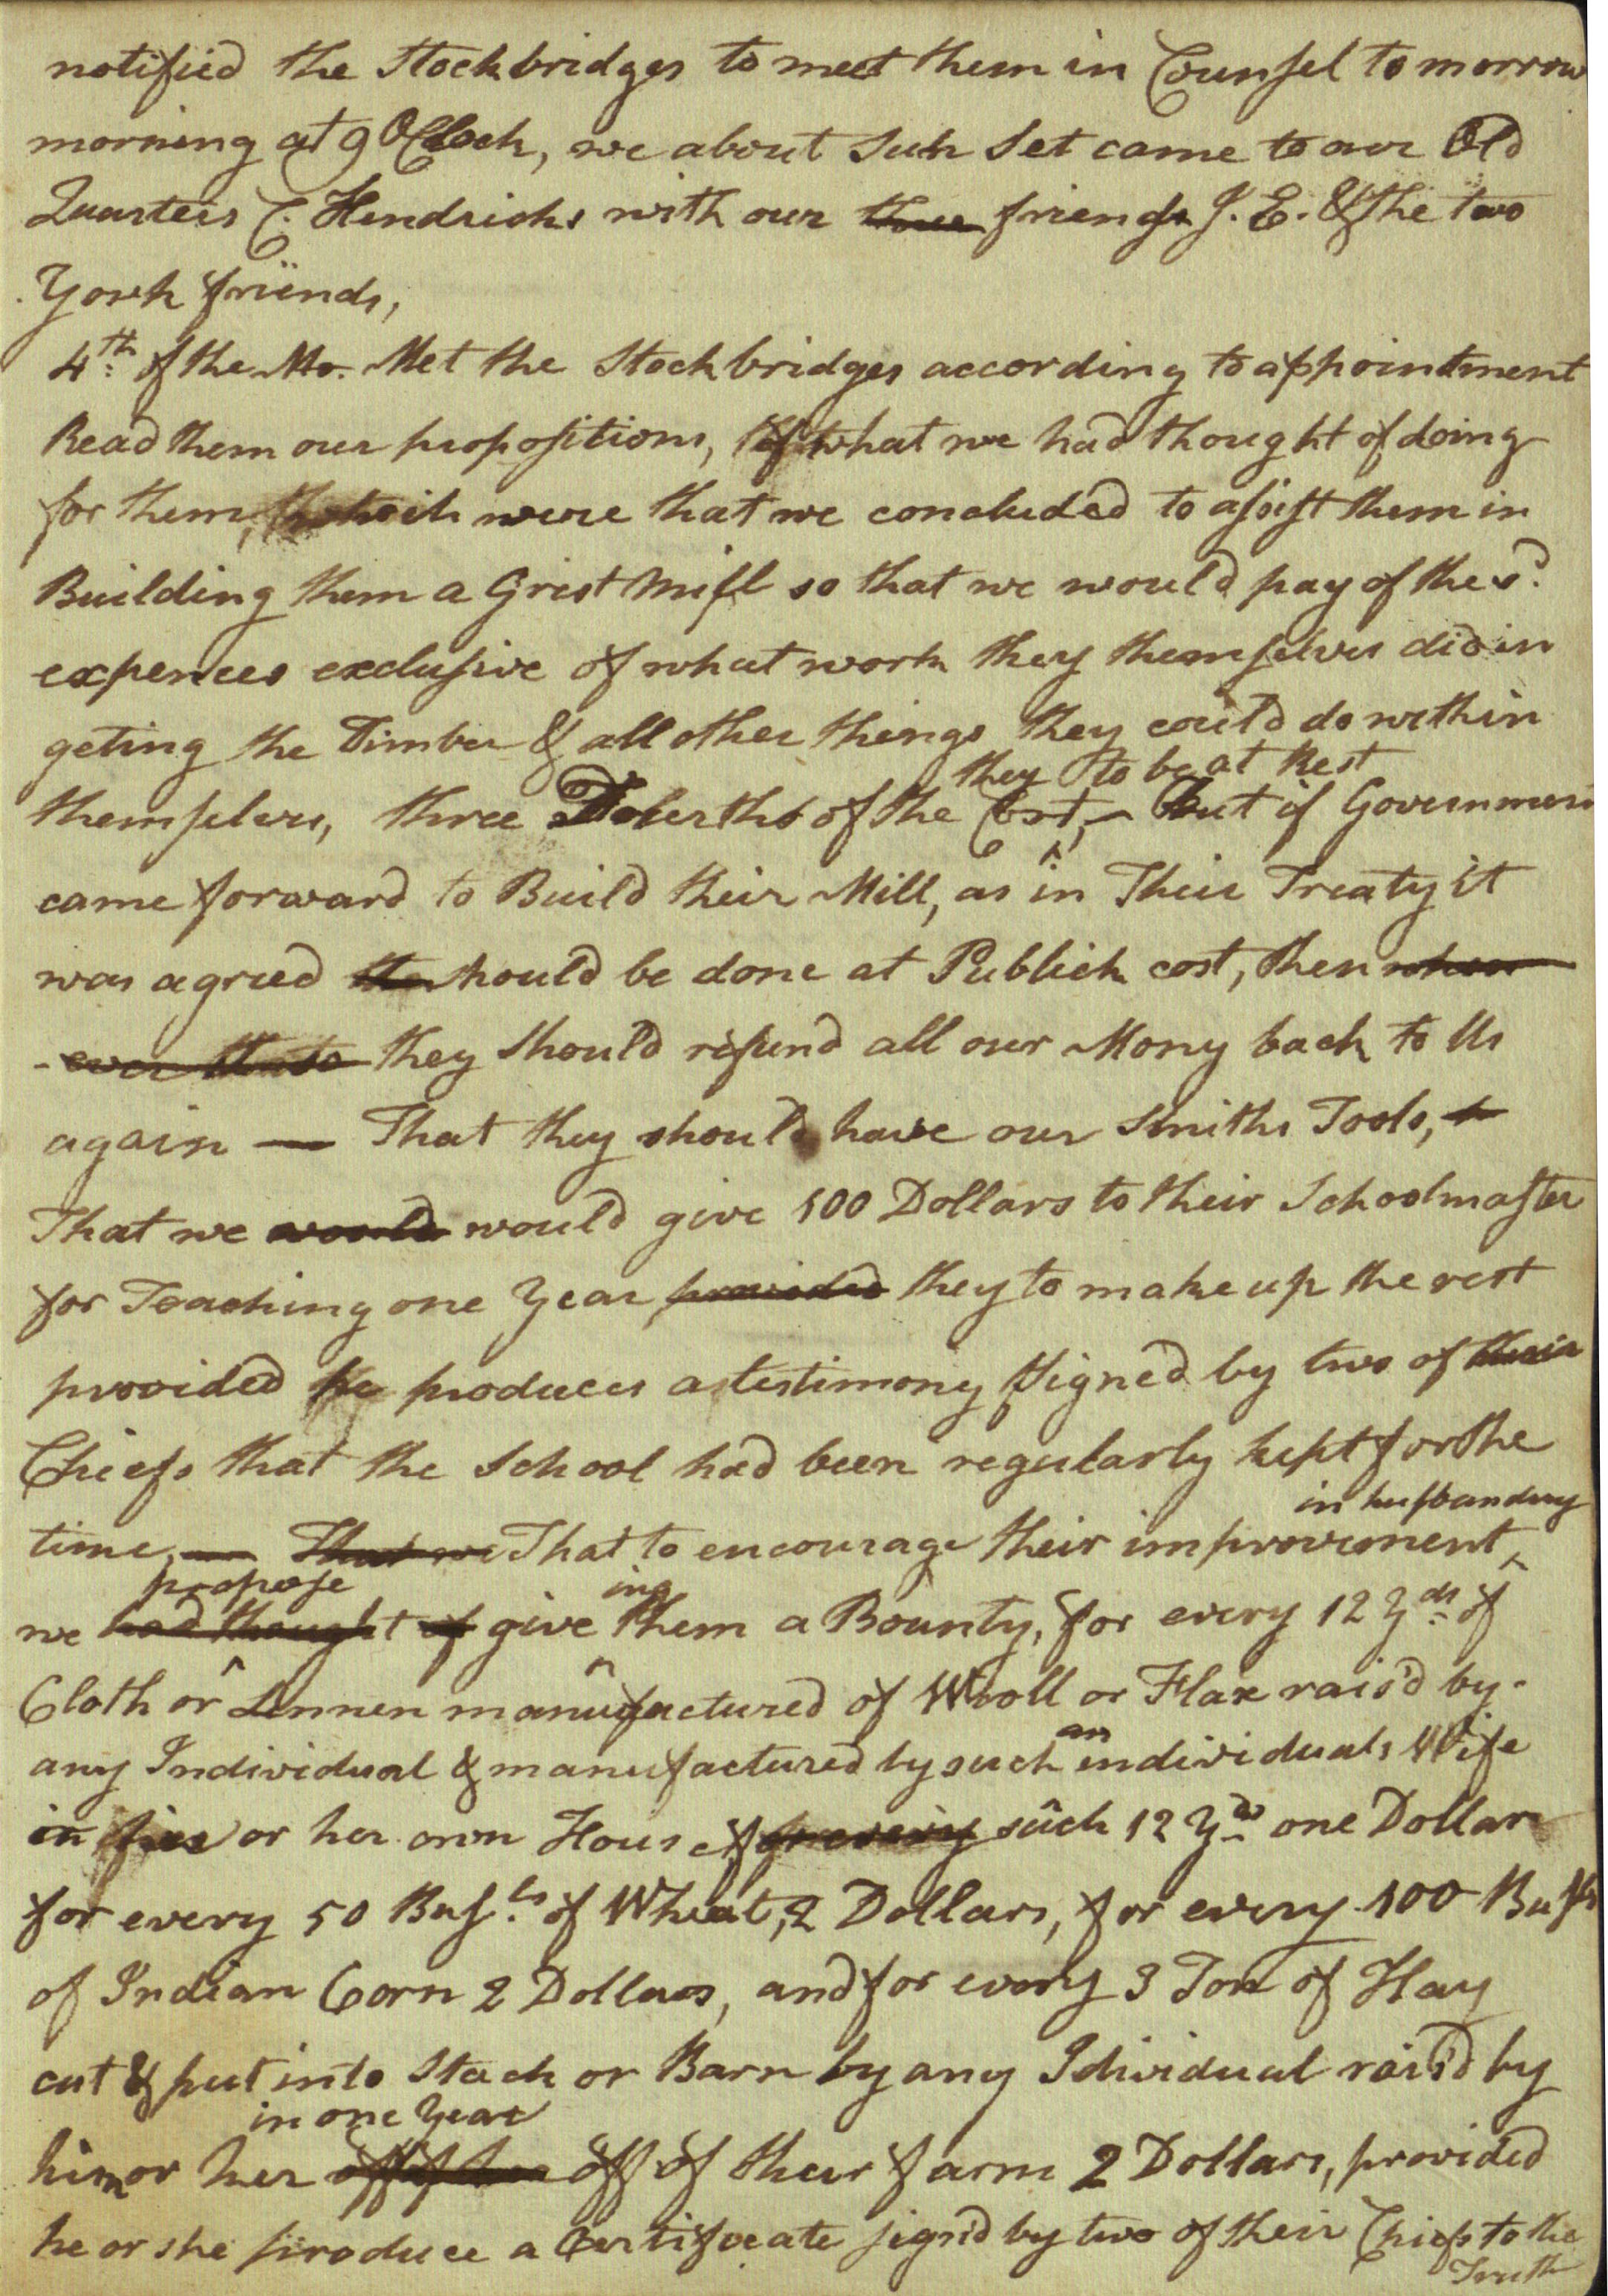 notified the Stockbridges to meet them in Counsel to morrow
morning at 9 OClock, we about Sun Set came to our Old
Quarters C. Hendricks with our three friends J. E. & the two
York friends,
4th of the Mo. Met the Stockbridges according to appointment
Read them our propositions, of what we had thought of doing
for them, which were that we concluded to assist them in
Building them a Grist Mill so that we would pay of the sd.
expences exclusive of what work they themselves did in
geting the Timber & all other things they could do within
they to be at Rest
themselves, three Foberths of the Cost, - But if Government
came forward to Build their Mill, as in Their Treaty it
was agreed the should be done at Publick cost, then when
ever they should refund all our Mony back to Us
again — That they should have our Smiths Tools,
That we would would give 100 Dollars to their Schoolmaster
for Teaching one Year provided they to make up the rest
provided he produces a testimony signed by two of their
Chiefs that the School had been regularly kept for the
in husbandry
time, — That we That to encourage their improvement
propose ing
we had thought of give them a Bounty, for every 12 Yds of
Cloth or Linnen manufactured of Wooll or Flax rais'd by
an
any Individual & manufactured by such individuals Wife
in his or her own House, for every such 12 Yds one Dollar
for every 50 Busls of Wheat, 2 Dollars, for every 100 Busls
of Indian Corn 2 Dollars, and for every 3 Ton of Hay
cut & put into Stack or Barn by any Idividual rais'd by
in one Year
him or her off of their farm 2 Dollars, provided
he or she produce a Certifocate sign'd by two of their Chiefs to the
Truth